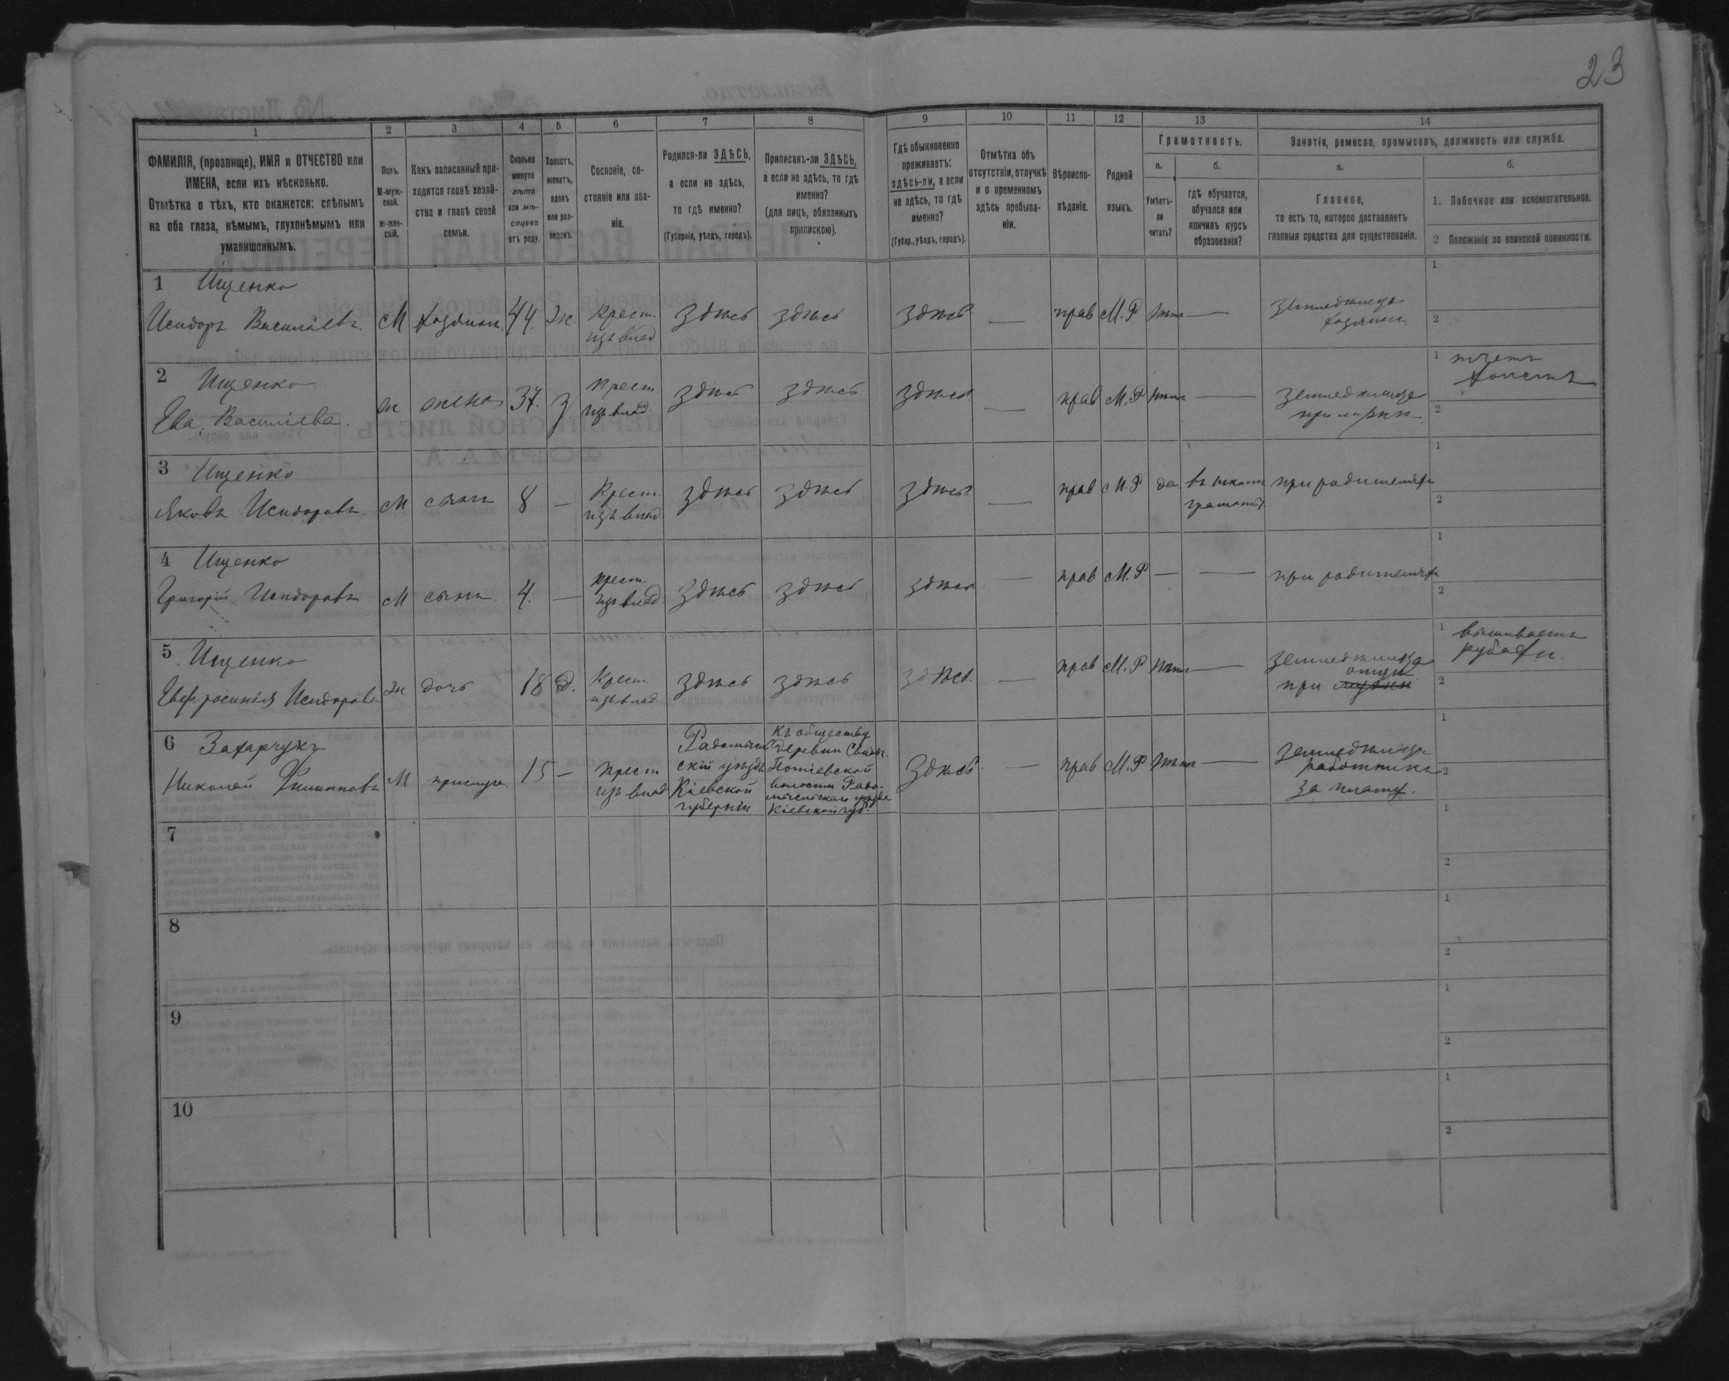 23
1 2 3 4 5 6 7 8 9 10 11 12 13 14
ФАМИЛІЯ, (прозвище), ИМЯ и ОТЧЕСТВО или ИМЕНА, если ихъ нѣсколько.
Отмѣтка о тѣхъ, кто окажется: слѣпымъ на оба глаза, нѣмымъ, глухонѣмымъ или умалишеннымъ.
Полъ. М-мужской. ж-женскій.
Какъ записанный приходится главѣ хозяйства и главѣ своей семьи.
Сколько минуло лѣтъ или мѣсяцевъ отъ роду.
Холостъ, женатъ, вдовъ или разведенъ.
Сословіе, состояніе или званіе.
Родился-ли ЗДѢСЬ, а если не здѣсь, то гдѣ именно? (Губернія, уѣздъ, городъ).
Приписанъ-ли ЗДѢСЬ, а если не здѣсь, то гдѣ именно? (для лицъ, обязанныхъ припискою).
Гдѣ обыкновенно проживаетъ: здѣсь-ли, а если не здѣсь, то гдѣ именно? (Губер., уѣздъ, городъ).
Отмѣтка объ отсутствіи, отлучкѣ и о временномъ здѣсь пребываніи.
Вѣроисповѣданіе.
Родной языкъ.
Грамотность.
а. Умѣетъ-ли читать?
б. гдѣ обучается, обучался или кончилъ курсъ образованія?
Занятіе, ремесло, промыселъ, должность или служба.
а. Главное, то есть то, которое доставляетъ главныя средства для существованія.
б.
1. Побочное или вспомогательное.
2 Положеніе по воинской повинности.
1 Ищенко
Исидоръ Василіевъ М хозяинъ 44 ж. крест. изъ влад. здѣсь здѣсь здѣсь — прав М.Р нѣтъ — земледѣлецъ хозяинъ
1
2
2 Ищенко
Ева Василіева ж жена 37. з крест. изъ влад. здѣсь здѣсь здѣсь — прав М.Р нѣтъ — земледѣлица при мужи
1 ткетъ
2
3 Ищенко
Яковъ Исидоровъ М сынъ 8 — крест. изъ влад. здѣсь здѣсь здѣсь — прав М.Р да въ школѣ грамоты при родителяхъ
1
2
4 Ищенко
Григорій Исидоровъ М сынъ 4. — крест. изъ влад. здѣсь здѣсь здѣсь — прав М.Р — — при родителяхъ
1
2
5 Ищенко
Евфросинія Исидорова ж дочь 18 д. крест. изъ влад. здѣсь здѣсь здѣсь — прав М.Р нѣтъ — земледѣлица при отцѣ
1 вышиваетъ рубахи.
2
6 Захарчукъ
Николай Филипповъ М прислуга 15 — крест изъ влад Радомысльскій уѣздъ Кіевской губерніи
Къ обществу деревни
Потіевской волости Радомысльскаго уѣзда Кіевской губ. здѣсь — прав М.Р нѣтъ — земледѣлецъ работникъ за плату.
1
2
7
1
2
8
1
2
9
1
2
10
1
2